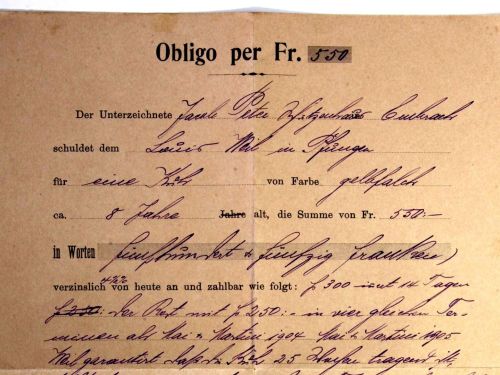 Obligo per Fr. 550
Der Unterzeichnete Jacob Peter Schützenhaus Embrach
schuldet dem Louis Weil in Pfungen
für eine Kuh von Farbe gelbfalch
ca. 8 Jahre Jahre alt, die Summe von Fr. 550:-
in Worten fünfhundert & fünfzig franken
verzinslich 4½% von heute an und zahlbar wie folgt: f 300 14 Tagen
der Rest mit f 250:- in vier gleichen Ter-
minen als Mai & Martini 1904 Mai & Martini 1905
Weil garantirt daß die Kuh 25 Wochen tragend